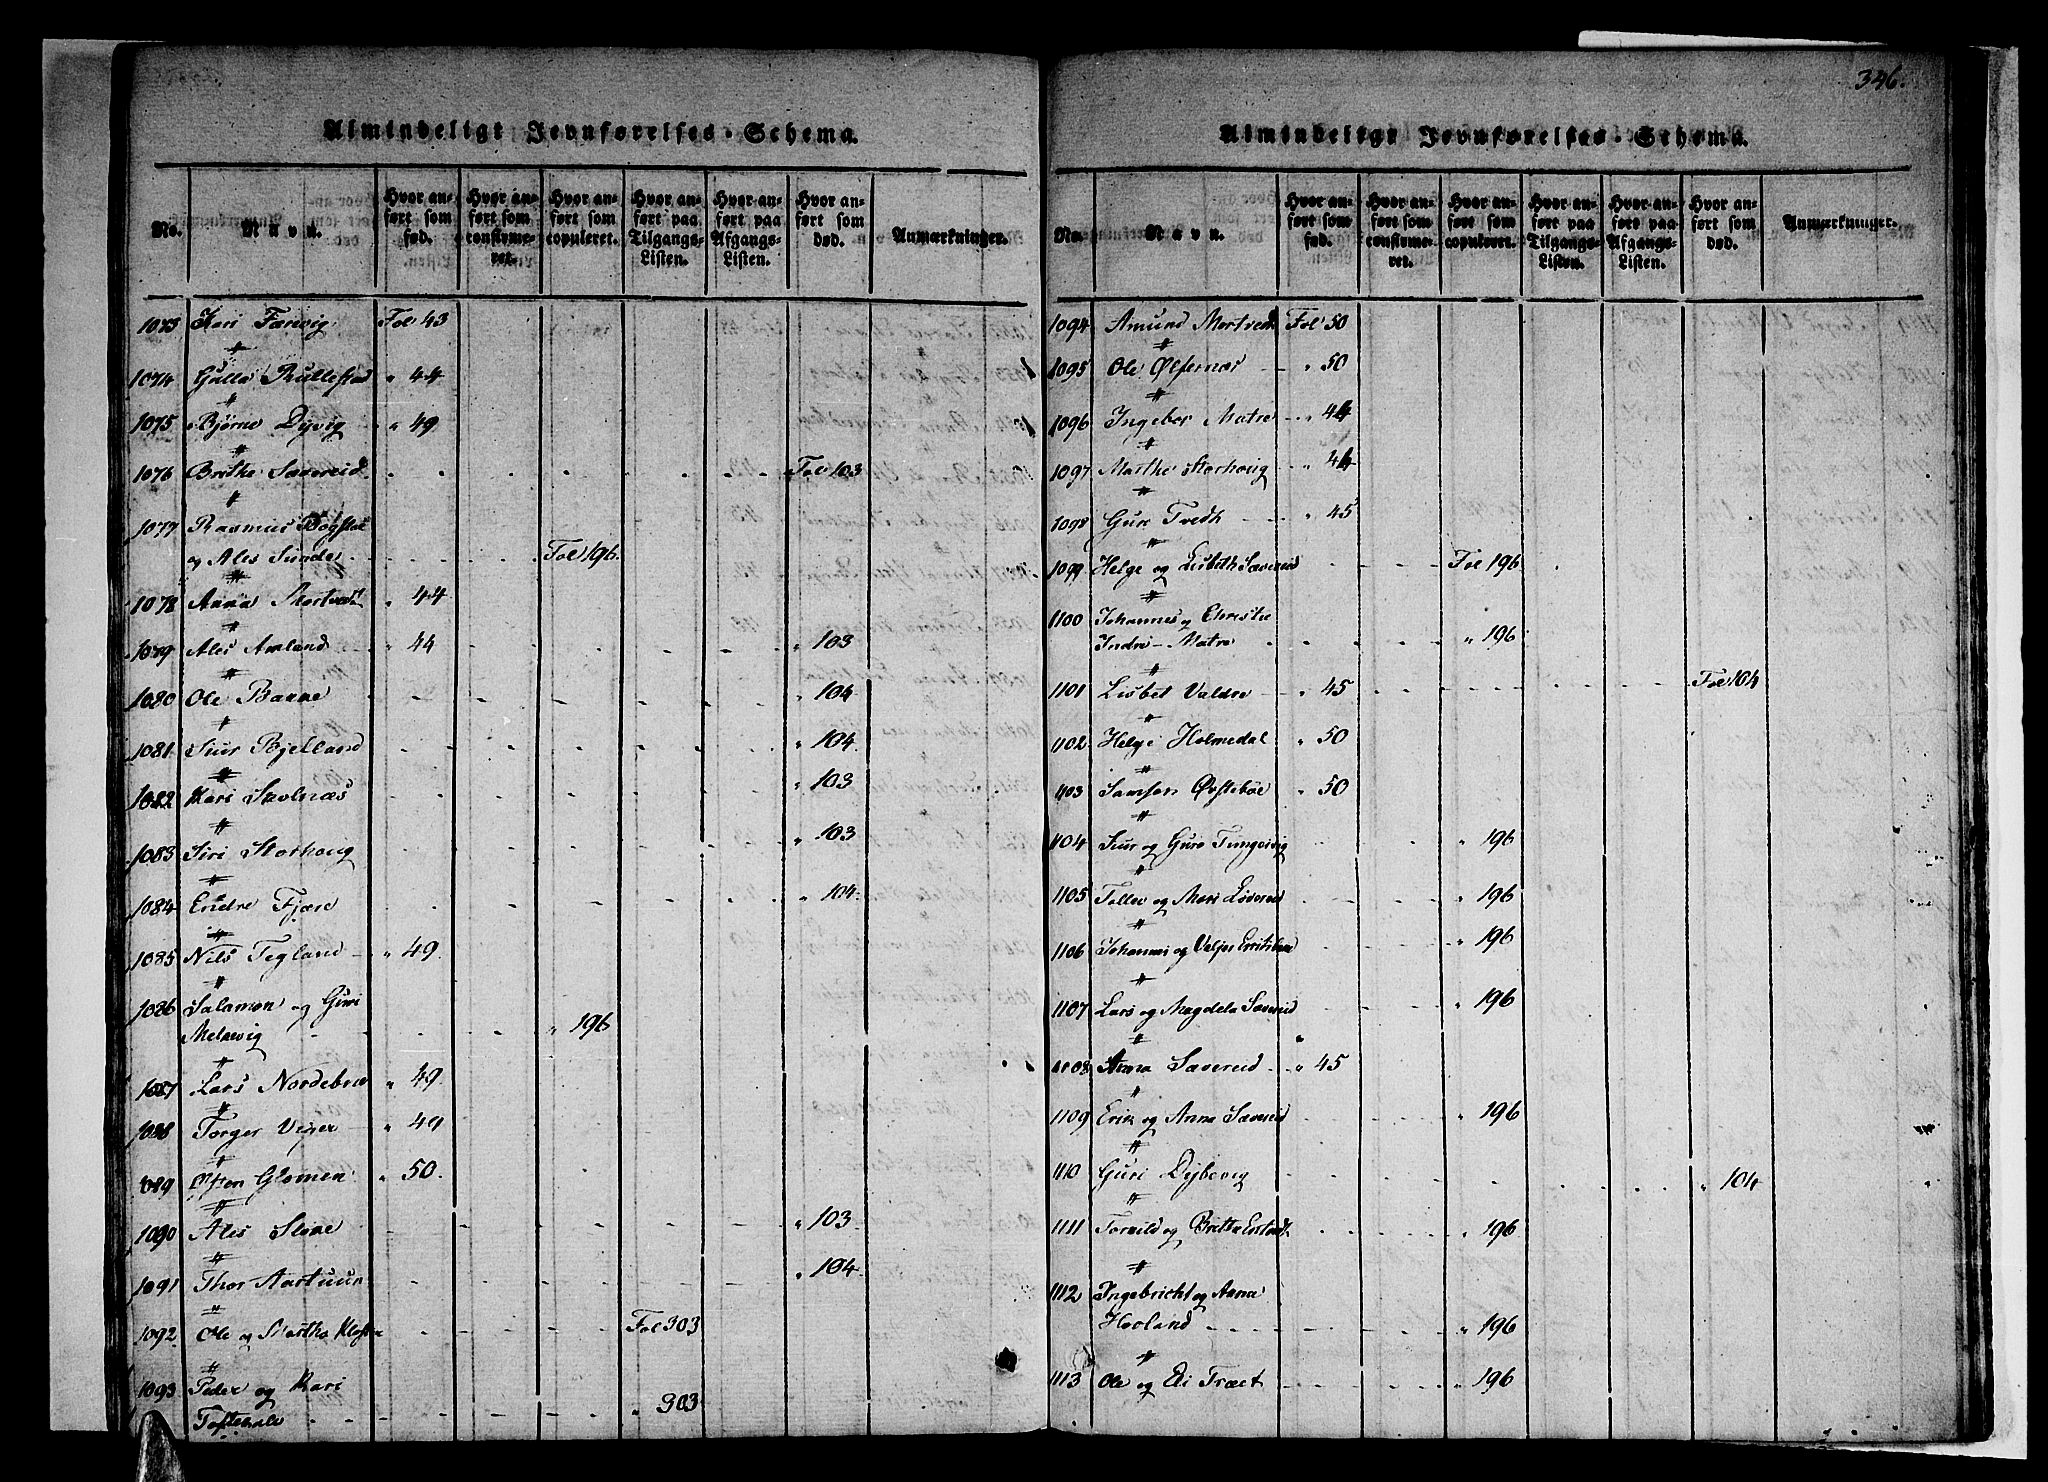 346.
Almindeligt Jevnførelses-Schema.
No. Navn. Hvor anført som fød. Hvor anført som confirmeret. Hvor anført som copuleret. Hvor anført paa Tilgangs-Listen. Hvor anført paa Afgangs-Listen. Hvor anført som død. Anmærkninger.
1073 Kari Færvig Fol 43
1074 Gulla Rullestad " 44
1075 Bjørne Dijvig " 49
1076 Brithe Sævereid Fol 103
1077 Rasmus Bogstal
og Ales Sunde Fol 196.
1078 Anna Mortvedt " 44
1079 Ales Amland " 44 " 103
1080 Ole Banne " 104
1081. Siur Bjelland " 104.
1082 Kari Skolnæs " 103
1083 Siri Storhoug " 103
1084 Endre Fjære " 104.
1085 Nils Tegland " 49
1086 Salamon og Guri
Melkevig " 196
1087 Lars Nordebrue " 49
1088 Torger Viker " 49
1089 Østen Glomen " 50.
1090 Ales Slove " 103
1091 Thor Aartuun " 104
1092 Ole og Martha Kloster Fol 303
1093 Peder og Kari
Toftekalv " 303
Almindeligt Jevnførelses-Schema.
No. Navn. Hvor anført som fød. Hvor anført som confirmeret. Hvor anført som copuleret. Hvor anført paa Tilgangs-Listen. Hvor anført paa Afgangs-Listen. Hvor anført som død. Anmærkninger.
1094 Amund Mortvedt Fol 50
1095 Ole Ølfernæs " 50
1096 Ingebor Matre " 44
1097 Marthe Storhoug " 44
1098 Guro Tvedh " 45
1099 Helge og Lisbeth Sævereid Fol 196
1100 Johannes og Christie
Indre-Matre " 196
1101 Lisbet Valdre " 45 Fol 104
1102 Helge Holmedal " 50
1103 Samson Øvstebøe " 50
1104 Siur og Guro Tungesvig " 196
1105 Tollev og Mari " 196
1106 Johannes og Valjer " 196
1107 Lars og Magdela Sævereid " 196
1108 Anna Sævereid " 45
1109 Erik og Anna Sævereid " 196
1110 Guri Dijbevig " 104
1111 Tormild og Britta " 196
1112 Ingebricht og Anna
Hovland " 196
1113 Ole og Eli Træet " 196